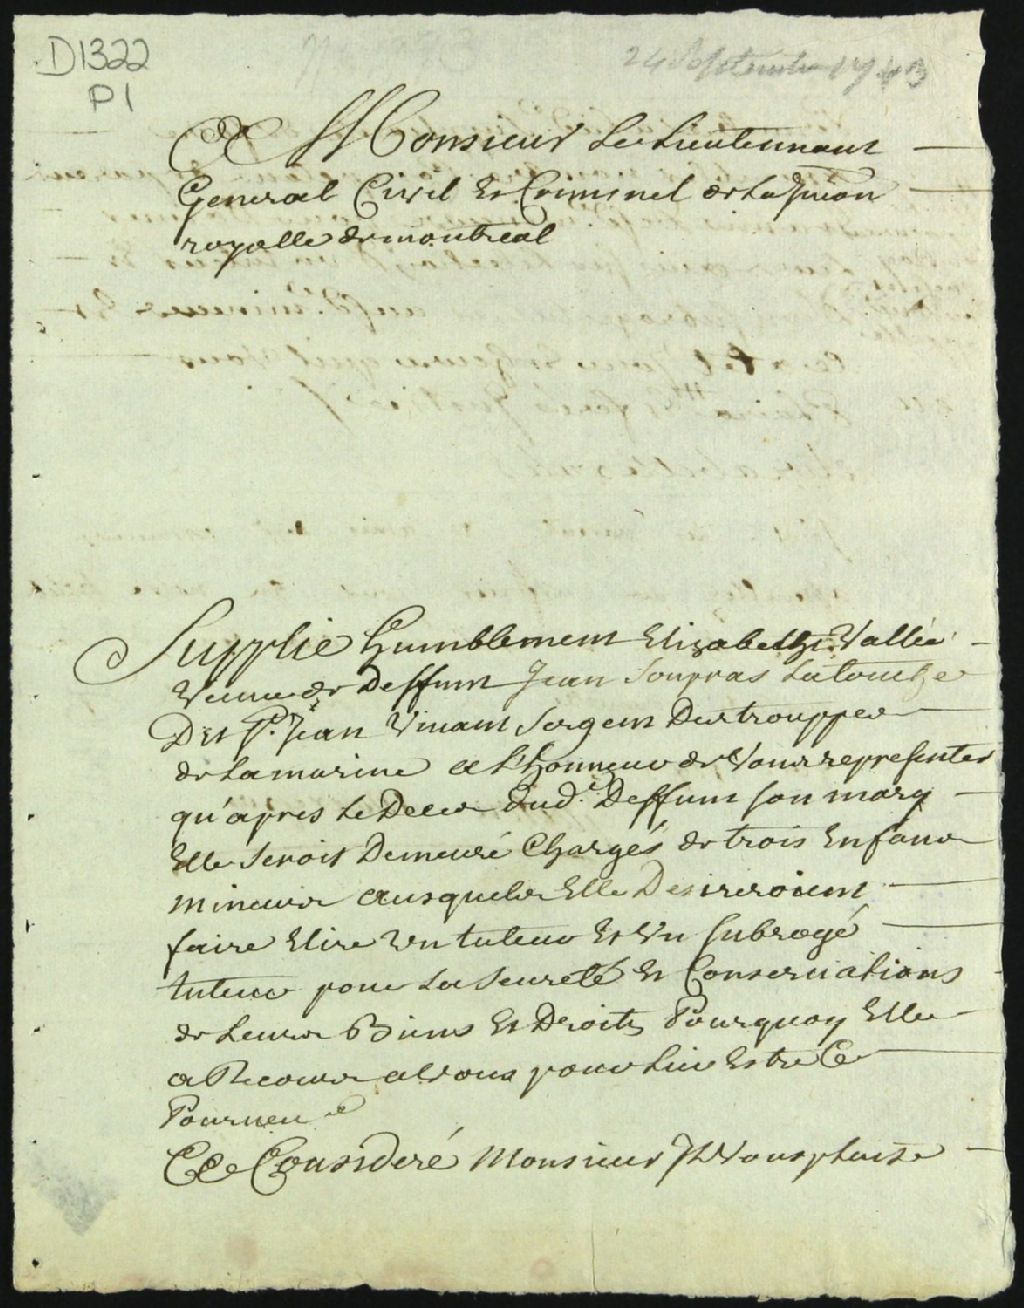 D1322
P1
24 Septembre 1743
A Monsieur Le Lieutennant
General Civil Et Criminel de La Juřion
royalle de montreal
Supplie humblement Elizabethe Vallée
Veuve de Deffunt Jean Soupras Latouche
Dit St. Jean Vivant Sergent Des trouppes
de La marine a L'honneur de Vous representer
qu'apris Le Deces dud. Deffunt son mary
Elle Seroit Demeuré Chargés de trois Enfans
mineurs ausquels Elle Desireroient
faire Elire Un tuteur Et Un Subrogé
tuteur pour La Seureté Et Conservations
de Leurs Biens Et Droits Pourquoy Elle
a Recours a Vous pour Luy Estre
Pourveu
Ce Consideré Monsieur Il Vous plaise